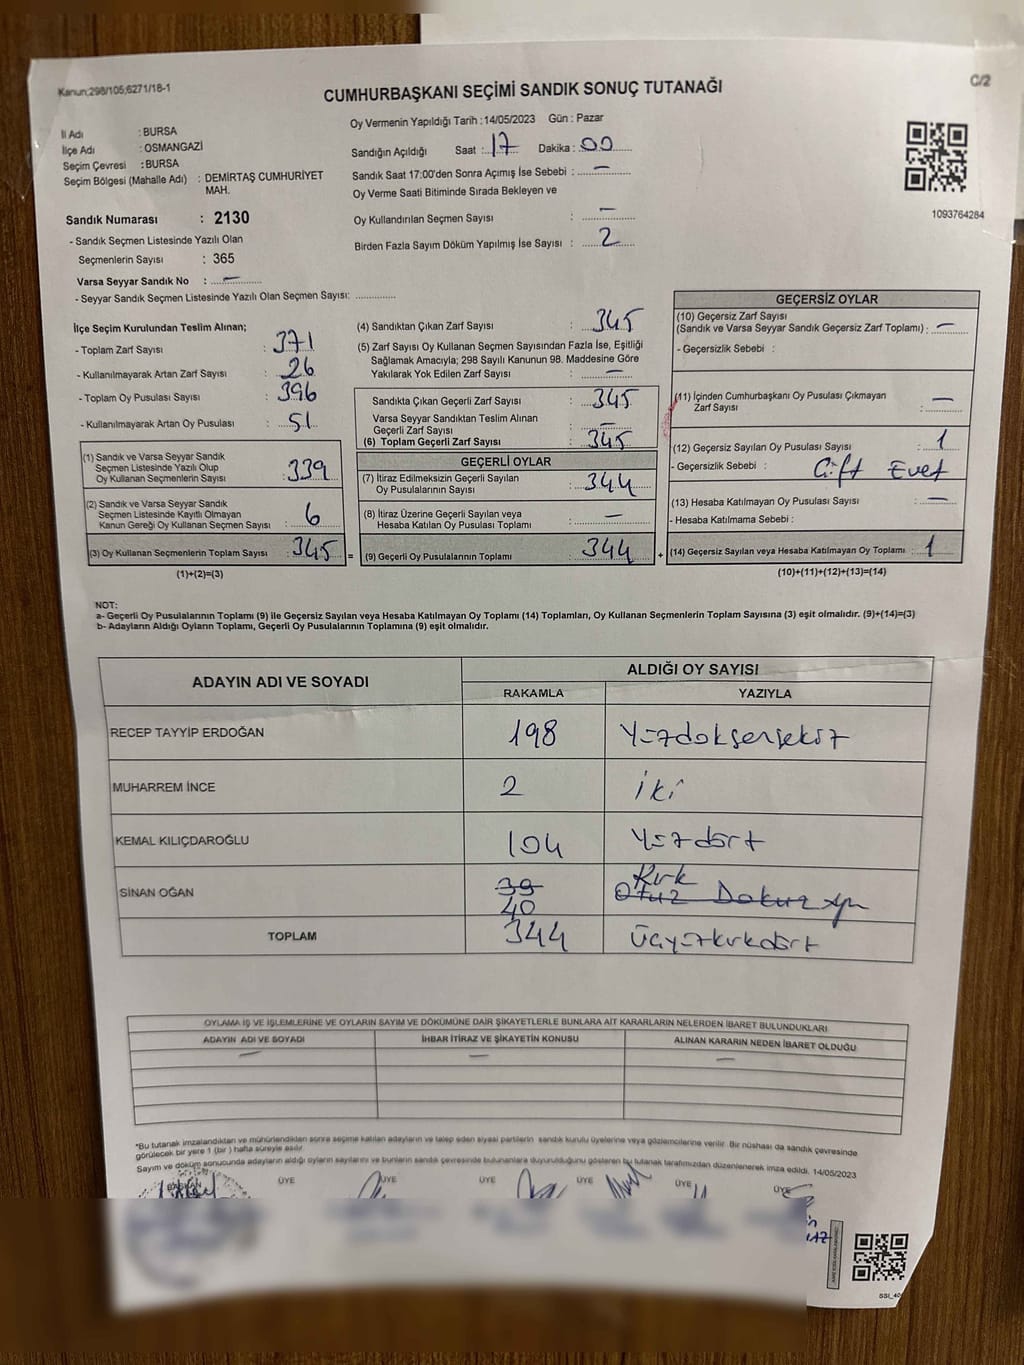 Kanun;298/105;6271/18-1
C/2
CUMHURBAŞKANI SEÇİMİ SANDIK SONUÇ TUTANAĞI
İl Adı : BURSA
İlçe Adı : OSMANGAZİ
Seçim Çevresi : BURSA
Seçim Bölgesi (Mahalle Adı) : DEMİRTAŞ CUMHURİYET
MAH.
Sandık Numarası : 2130
- Sandık Seçmen Listesinde Yazılı Olan
Seçmenlerin Sayısı : 365
Varsa Seyyar Sandık No : —
- Seyyar Sandık Seçmen Listesinde Yazılı Olan Seçmen Sayısı: ..............
Oy Vermenin Yapıldığı Tarih : 14/05/2023 Gün : Pazar
Sandığın Açıldığı Saat : 17 Dakika : 00
Sandık Saat 17:00'den Sonra Açımış İse Sebebi : —
Oy Verme Saati Bitiminde Sırada Bekleyen ve
Oy Kullandırılan Seçmen Sayısı : —
Birden Fazla Sayım Döküm Yapılmış İse Sayısı : 2
1093764284
İlçe Seçim Kurulundan Teslim Alınan;
- Toplam Zarf Sayısı : 371
- Kullanılmayarak Artan Zarf Sayısı : 26
- Toplam Oy Pusulası Sayısı : 396
- Kullanılmayarak Artan Oy Pusulası : 51
(1) Sandık ve Varsa Seyyar Sandık
Seçmen Listesinde Yazılı Olup
Oy Kullanan Seçmenlerin Sayısı : 339
(2) Sandık ve Varsa Seyyar Sandık
Seçmen Listesinde Kayıtlı Olmayan
Kanun Gereği Oy Kullanan Seçmen Sayısı : 6
(3) Oy Kullanan Seçmenlerin Toplam Sayısı : 345 =
(1)+(2)=(3)
(4) Sandıktan Çıkan Zarf Sayısı : 345
(5) Zarf Sayısı Oy Kullanan Seçmen Sayısından Fazla İse, Eşitliği
Sağlamak Amacıyla; 298 Sayılı Kanunun 98. Maddesine Göre
Yakılarak Yok Edilen Zarf Sayısı : —
Sandıkta Çıkan Geçerli Zarf Sayısı : 345
Varsa Seyyar Sandıktan Teslim Alınan
Geçerli Zarf Sayısı : —
(6) Toplam Geçerli Zarf Sayısı : 345
GEÇERLİ OYLAR
(7) İtiraz Edilmeksizin Geçerli Sayılan
Oy Pusulalarının Sayısı : 344
(8) İtiraz Üzerine Geçerli Sayılan veya
Hesaba Katılan Oy Pusulası Toplamı : —
(9) Geçerli Oy Pusulalarının Toplamı : 344 +
GEÇERSİZ OYLAR
(10) Geçersiz Zarf Sayısı
(Sandık ve Varsa Seyyar Sandık Geçersiz Zarf Toplamı) : —
- Geçersizlik Sebebi :
(11) İçinden Cumhurbaşkanı Oy Pusulası Çıkmayan
Zarf Sayısı : —
(12) Geçersiz Sayılan Oy Pusulası Sayısı : 1
- Geçersizlik Sebebi : Çift Evet
(13) Hesaba Katılmayan Oy Pusulası Sayısı : —
- Hesaba Katılmama Sebebi :
(14) Geçersiz Sayılan veya Hesaba Katılmayan Oy Toplamı : 1
(10)+(11)+(12)+(13)=(14)
NOT:
a- Geçerli Oy Pusulalarının Toplamı (9) ile Geçersiz Sayılan veya Hesaba Katılmayan Oy Toplamı (14) Toplamları, Oy Kullanan Seçmenlerin Toplam Sayısına (3) eşit olmalıdır. (9)+(14)=(3)
b- Adayların Aldığı Oyların Toplamı, Geçerli Oy Pusulalarının Toplamına (9) eşit olmalıdır.
ADAYIN ADI VE SOYADI
ALDIĞI OY SAYISI
RAKAMLA YAZIYLA
RECEP TAYYİP ERDOĞAN 198 Yüzdoksensekiz
MUHARREM İNCE 2 İki
KEMAL KILIÇDAROĞLU 104 Yüzdört
Kırk
SİNAN OĞAN 39 Otuz Dokuz
40
TOPLAM 344 Üçyüzkırkdört
OYLAMA İŞ VE İŞLEMLERİNE VE OYLARIN SAYIM VE DÖKÜMÜNE DAİR ŞİKAYETLERLE BUNLARA AİT KARARLARIN NELERDEN İBARET BULUNDUKLARI
ADAYIN ADI VE SOYADI İHBAR İTİRAZ VE ŞİKAYETİN KONUSU ALINAN KARARIN NEDEN İBARET OLDUĞU
— — —
*Bu tutanak imzalandıktan ve mühürlendikten sonra seçime katılan adayların ve talep eden siyasi partilerin sandık kurulu üyelerine veya gözlemcilerine verilir. Bir nüshası da sandık çevresinde
görülecek bir yere 1 (bir) hafta süreyle asılır.
Sayım ve döküm sonucunda adayların aldığı oyların sayılarını ve bunların sandık çevresinde bulunanlara duyurulduğunu gösteren bu tutanak tarafımızdan düzenlenerek imza edildi. 14/05/2023
BAŞKAN ÜYE ÜYE ÜYE ÜYE ÜYE ÜYE